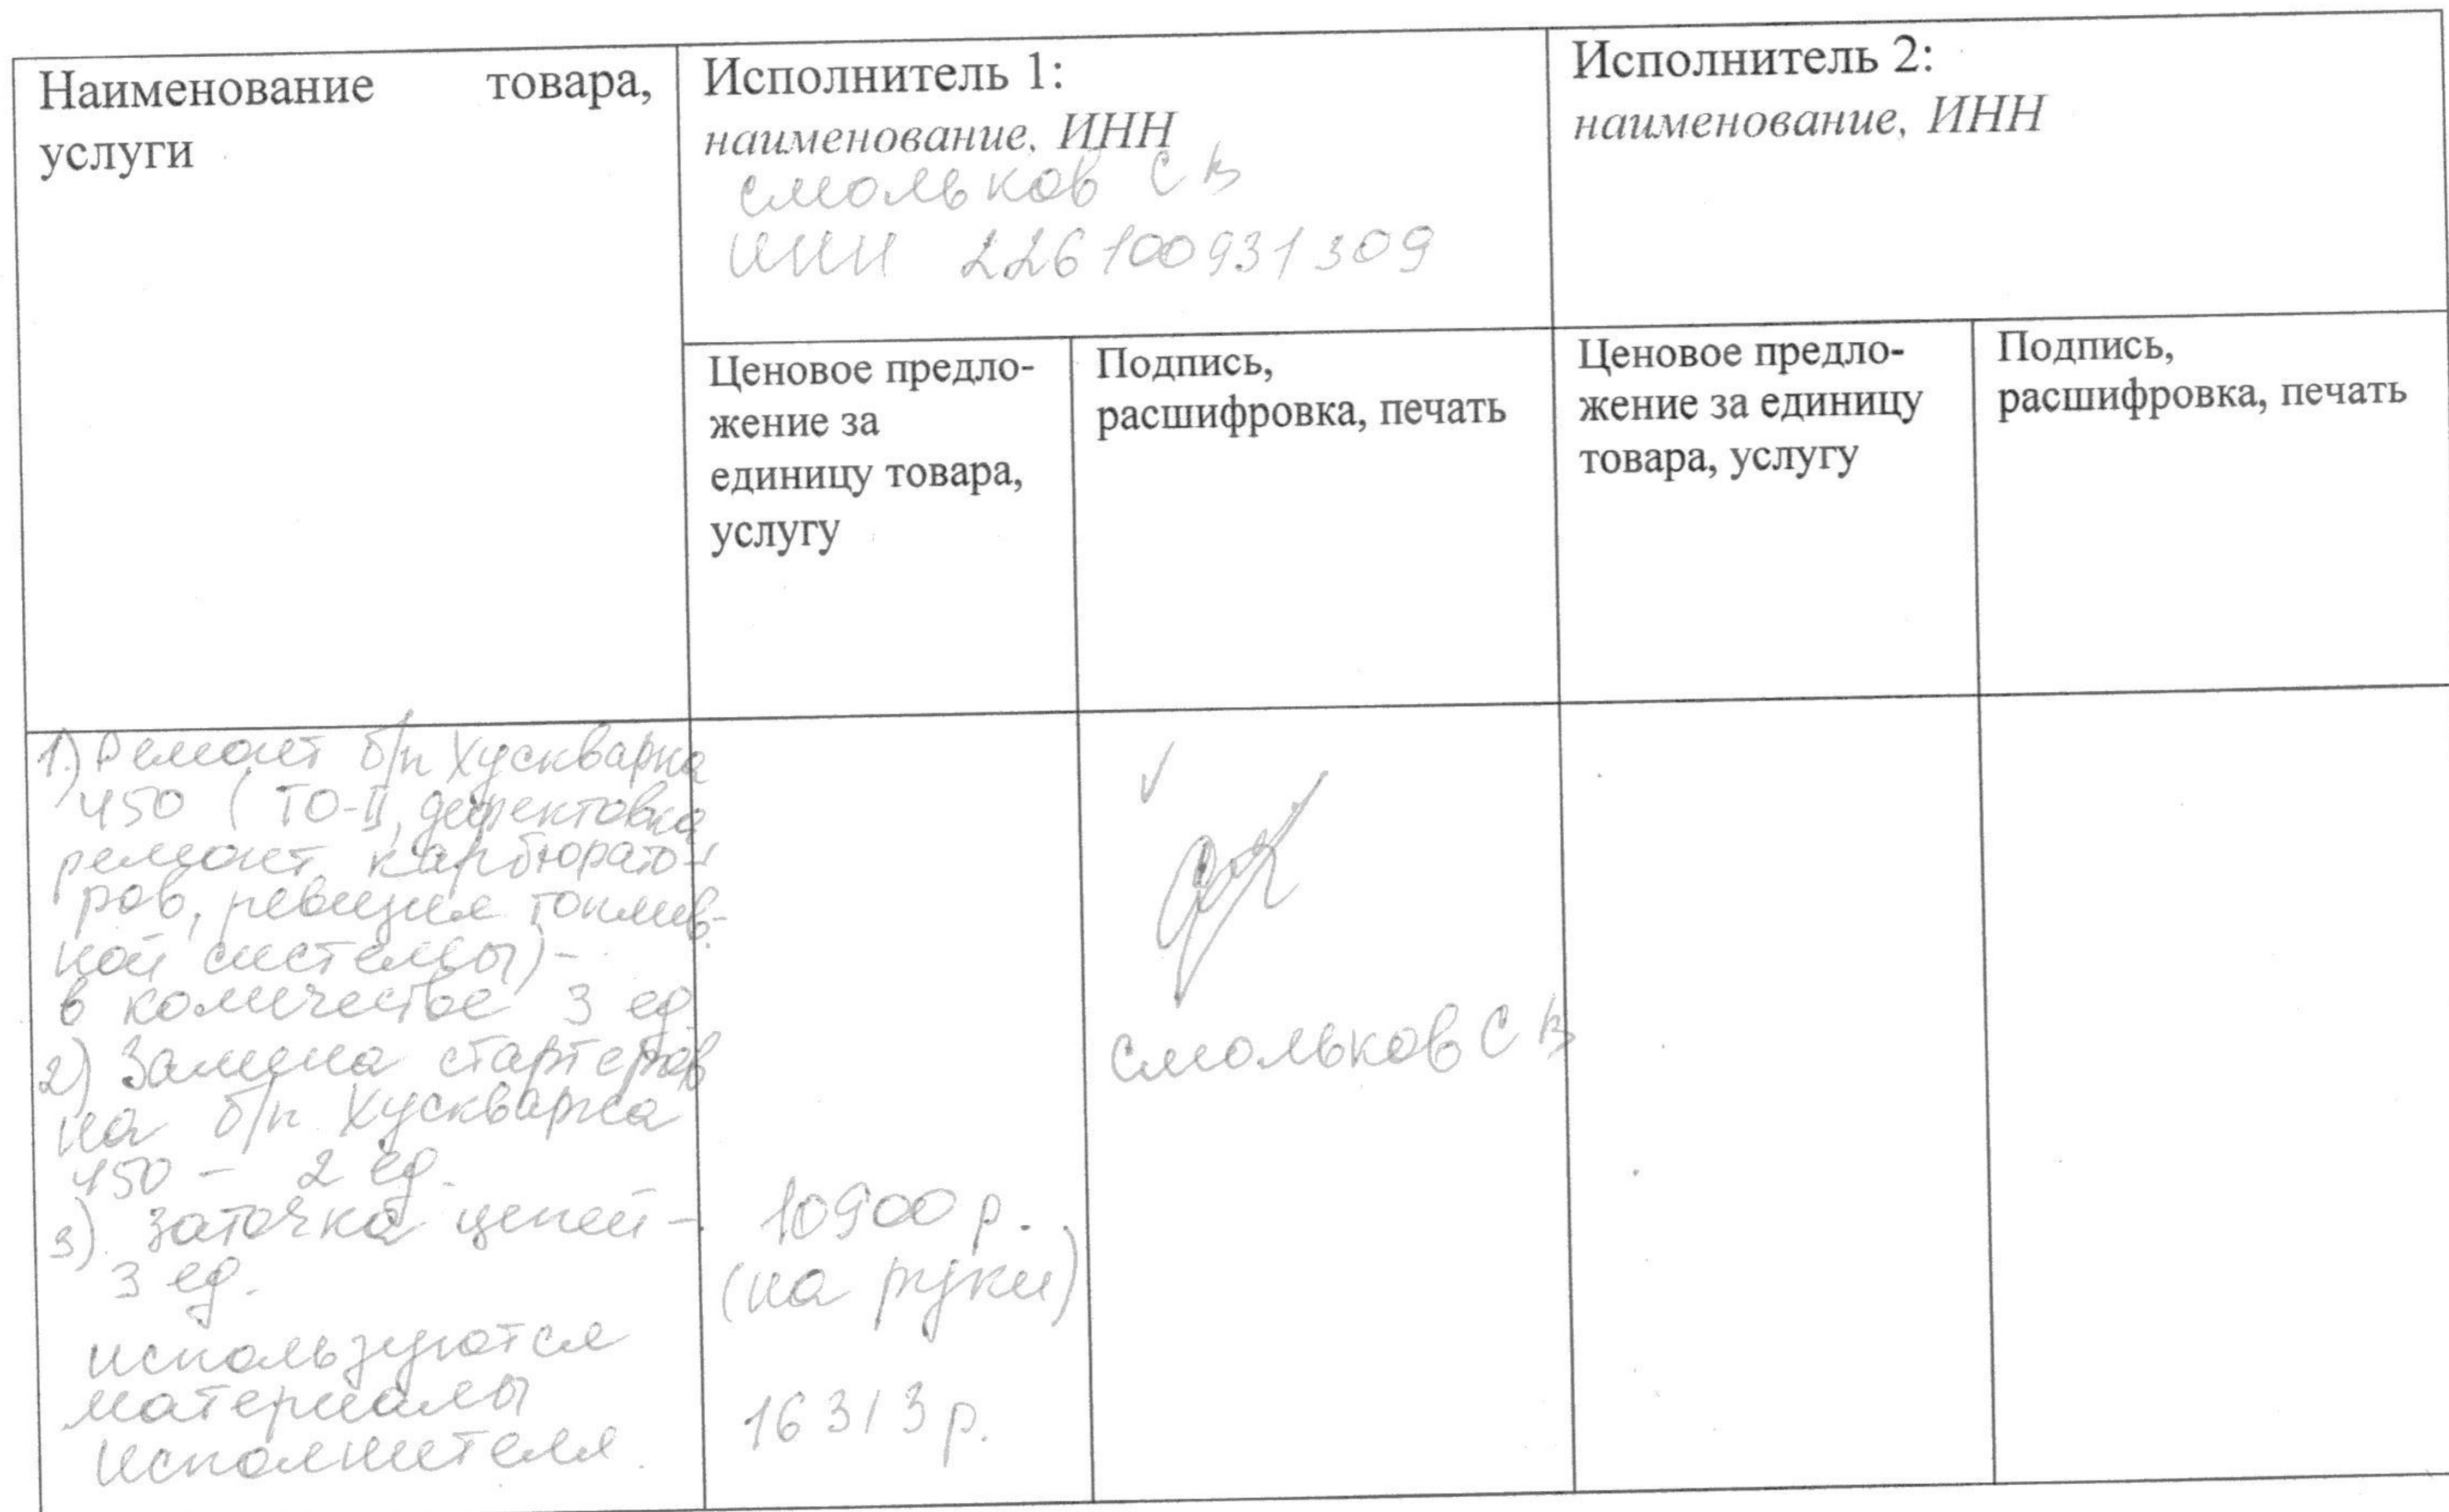 Наименование товара,
услуги
Исполнитель 1:
наименование, ИНН
Смольков С В
ИНН 226100931309
Исполнитель 2:
наименование, ИНН
Ценовое предло-
жение за
единицу товара,
услугу
Подпись,
расшифровка, печать
Ценовое предло-
жение за единицу
товара, услугу
Подпись,
расшифровка, печать
1.) Ремонт б/п Хускварна
450 (ТО-II, дефектовка
ремонт карбюрато-
ров, ревизия топлив-
ной системы) -
в количестве 3 ед.
2) Замена стартеров
на б/п Хускварна
450 - 2 ед.
3) Заточка цепей -
3 ед.
используются
материалы
исполнителя.
10900 р.
(на руки)
16313 р.
Смольков С В